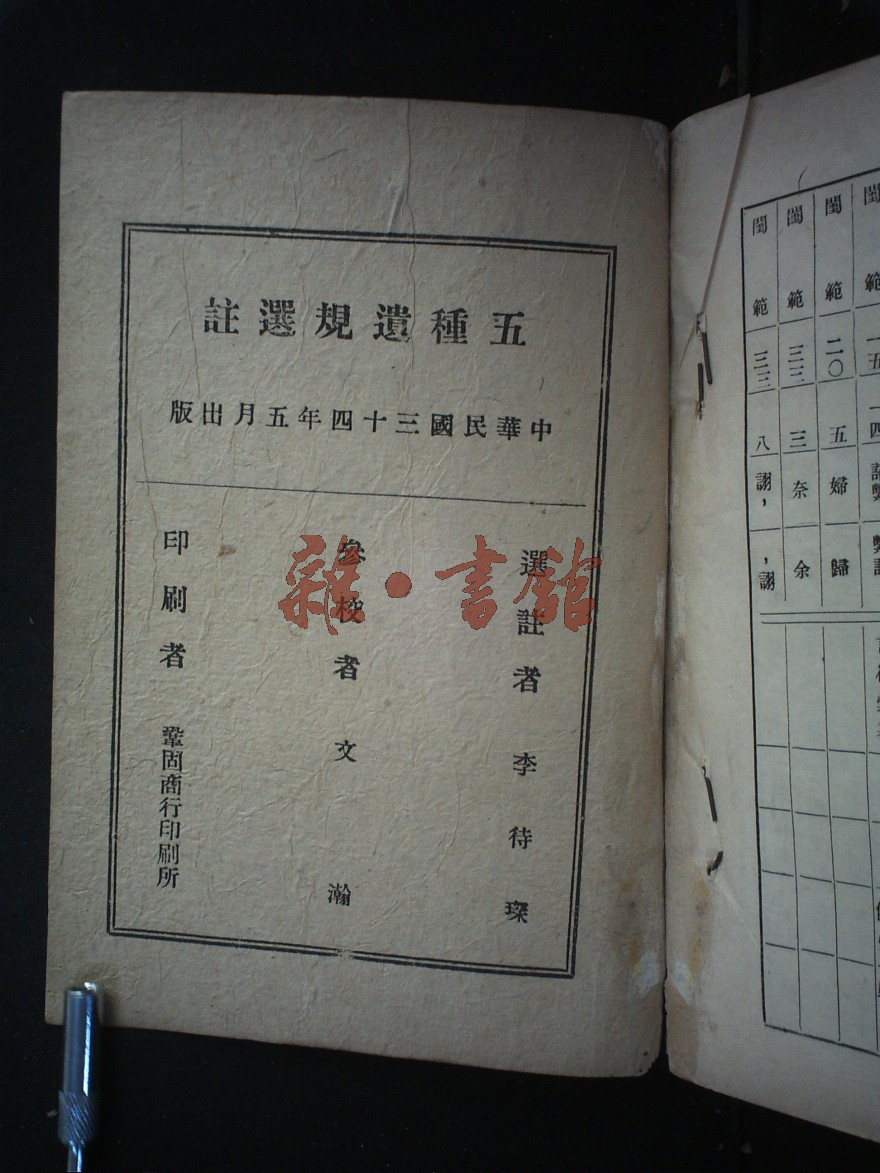 五種遺規選註
中華民國三十四年五月出版
選註者 李待琛
參校者 文瀚
印刷者 鞏固商行印刷所
雜·書館
閨範 二〇 五 婦 歸
閨範 三三 三 奈 余
閨範 三三 八 謝， ，謝